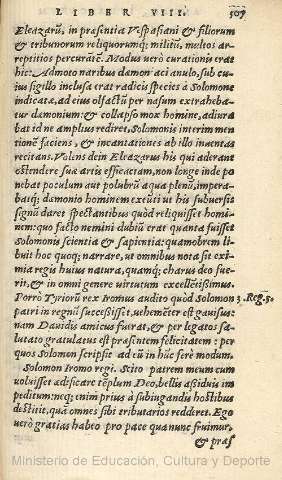 LIBER VIII. 507
Eleazarū, in præsentia Vespasiani & filiorum
& tribunorum reliquorumq; militū, multos ar-
reptitios percurasse. Modus verò curationis erat
hic: Admoto naribus dæmoniaci anulo, sub cu-
ius sigillo inclusa erat radicis species à Solomone
indicatæ, ad eius olfactū per nasum extrahebá-
tur dæmonium: & collapso mox homine, adiura
bat id ne amplius rediret, Solomonis interim men
tionē faciens, & incantationes ab illo inuentas
recitans. Volens dein Eleazarus his qui aderant
ostendere suæ artis efficaciam, non longe inde po
nebat poculum aut polubrū aqua plenū, impera-
batq; dæmonio hominem exeūti ut his subuersis
signū daret spectantibus quòd reliquisset homi-
nem: quo facto nemini dubiū erat quanta fuisset
Solomonis scientia & sapientia: quamobrem li-
buit hoc quoq; narrare, ut omnibus nota sit exi-
mia regis huius natura, quamq; charus deo fue-
rit, & in omni genere virtutum excellētissimus.
Porrò Tyriorū rex Iromus audito quòd Solomon 3. Reg. 5.
patri in regnū successisset, vehemēter est gauisus:
nam Dauidis amicus fuerat, & per legatos sa-
lutato gratulatus est præsentem felicitatem: per
quos Solomon scripsit ad eū in hūc ferè modum.
Solomon Iromo regi. Scito patrem meum cum
voluisset ædificare tēplum Deo, bellis assiduis im
peditum: neq; enim prius à subiugandis hostibus
destitit, quà omnes sibi tributarios redderet. Ego
verò gratias habeo pro pace qua nunc fruimur,
& præf
Ministerio de Educación, Cultura y Deporte